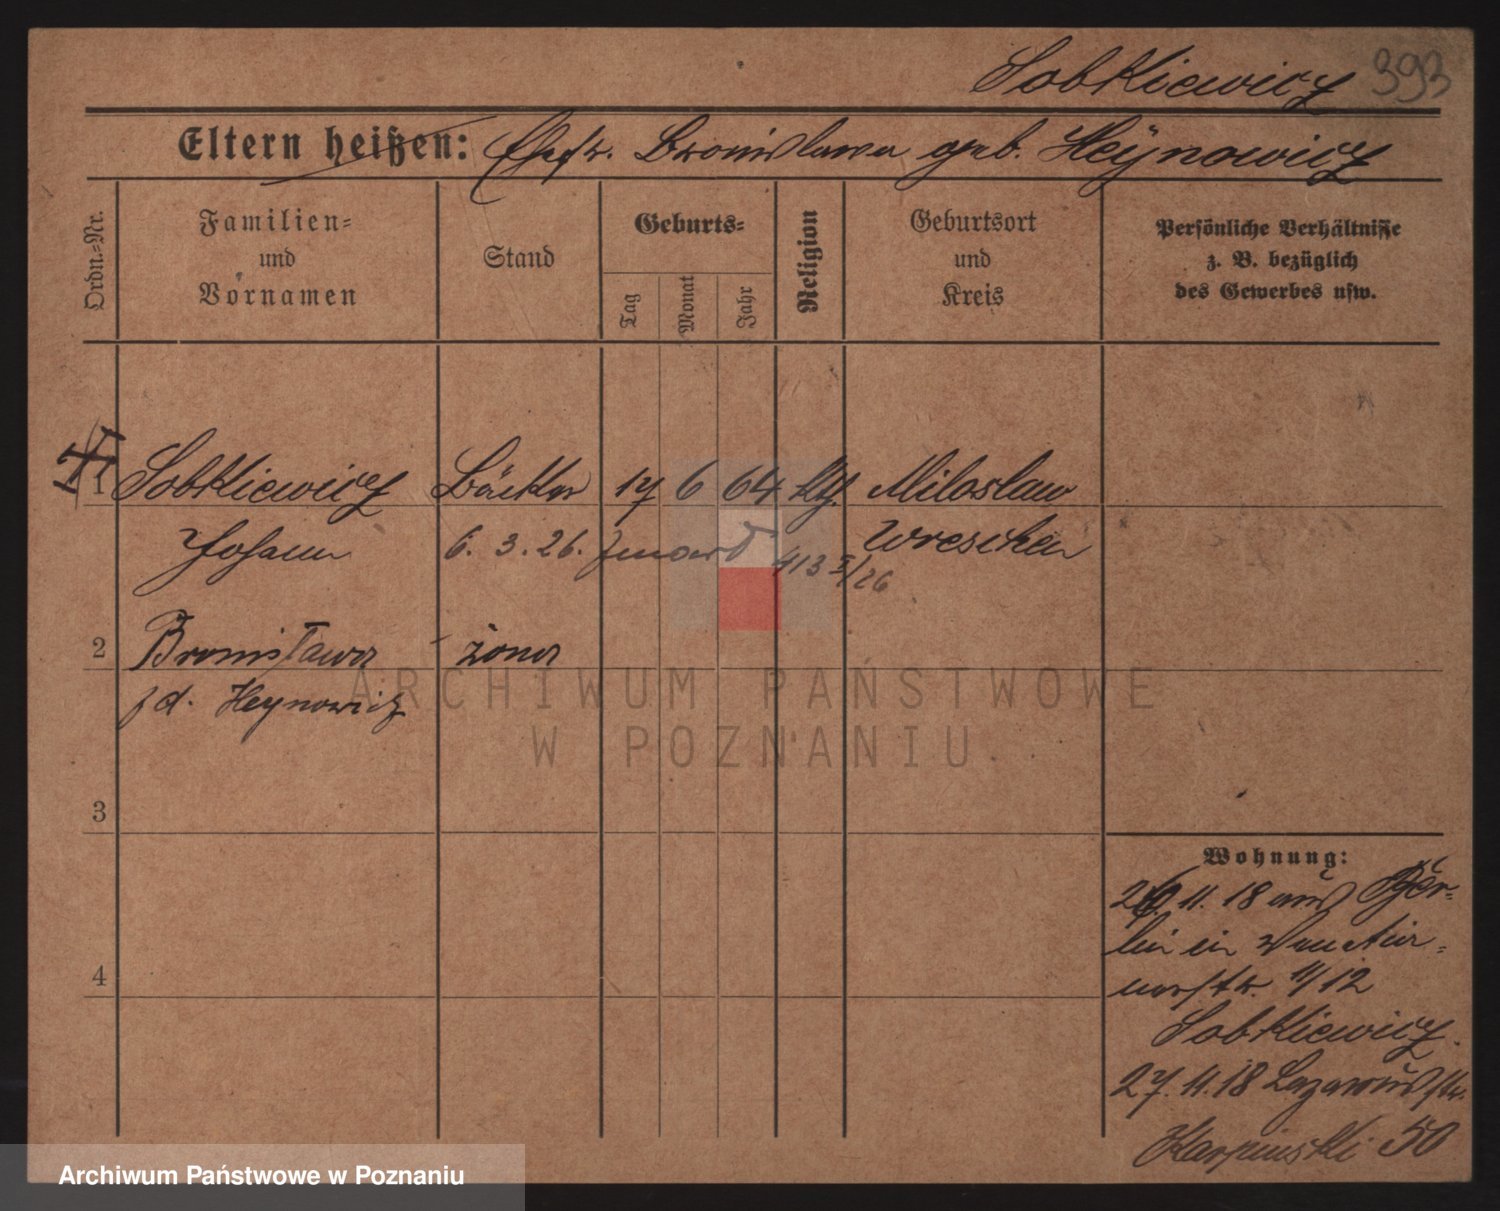 Sobkiewicz 393
Eltern heißen: Ehefr. Bronislawa geb. Heÿnowicz
Ordn.-Nr.
Familien-
und
Vornamen
Stand
Geburts-
Tag
Monat
Jahr
Religion
Geburtsort
und
Kreis
Persönliche Verhältnisse
z. B. bezüglich
des Gewerbes usw.
1 Sobkiewicz Bäcker 17 6 64 kth. Miloslaw
Johann 6. 3. 26. zmarł 413 3/26 Wreschen
2 Bronisława żona
z d. Heynowicz
3
4
Wohnung:
26. 11. 18 aus Ber-
lin in
11/12
Sobkiewicz.
27. 11. 18 Lazarusstr.
Karpinski 50
ARCHIWUM PAŃSTWOWE
W POZNANIU
Archiwum Państwowe w Poznaniu